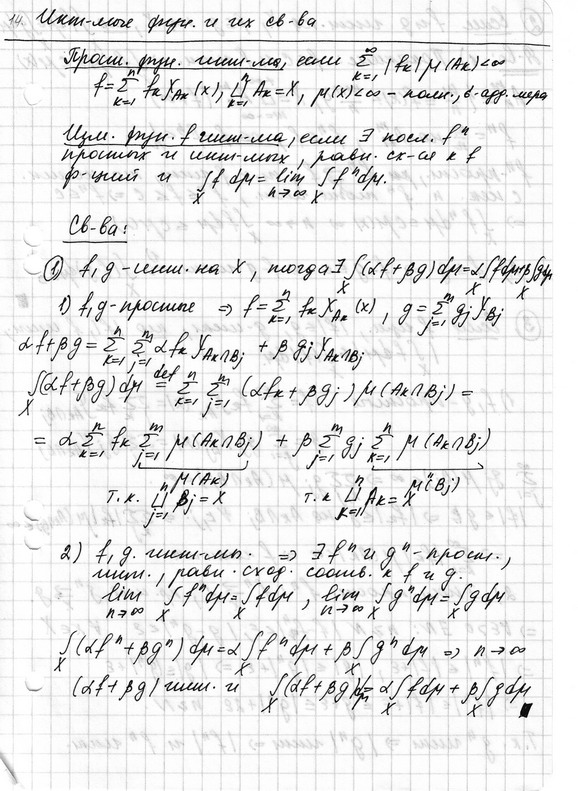 14. Инт-мые фун. и их св-ва
Прост. фун. инт-ма, если ∑_{k=1}^{∞} |f_k| μ(A_k) < ∞
f = ∑_{k=1}^{n} f_k χ_{A_k}(x), ⨆_{k=1}^{n} A_k = X, μ(X) < ∞ - полн., σ-адд. мера
Изм. фун. f инт-ма, если ∃ посл. f^n
простых и инт-мых, равн. сх-ся к f
ф-ций и ∫_X f dμ = lim_{n→∞} ∫_X f^n dμ.
Св-ва:
① f, g - инт. на X, тогда ∃ ∫_X (αf + βg) dμ = α∫_X f dμ + β∫_X g dμ
1) f, g - простые ⇒ f = ∑_{k=1}^{n} f_k χ_{A_k}(x), g = ∑_{j=1}^{m} g_j χ_{B_j}
αf + βg = ∑_{k=1}^{n} ∑_{j=1}^{m} αf_k χ_{A_k∩B_j} + βg_j χ_{A_k∩B_j}
∫_X (αf + βg) dμ def= ∑_{k=1}^{n} ∑_{j=1}^{m} (αf_k + βg_j) μ(A_k∩B_j) =
= α ∑_{k=1}^{n} f_k ∑_{j=1}^{m} μ(A_k∩B_j) + β ∑_{j=1}^{m} g_j ∑_{k=1}^{n} μ(A_k∩B_j)
μ(A_k) " μ(B_j)
т.к. ⨆_{j=1}^{n} B_j = X т.к. ⨆_{k=1}^{n} A_k = X
2) f, g. инт-мы. ⇒ ∃ f^n и g^n - прост.,
инт., равн. сход. соотв. к f и g.
lim_{n→∞} ∫_X f^n dμ = ∫_X f dμ, lim_{n→∞} ∫_X g^n dμ = ∫_X g dμ
∫_X (αf^n + βg^n) dμ = α∫_X f^n dμ + β∫_X g^n dμ ⇒ n→∞
(αf + βg) инт. и ∫_X (αf + βg) dμ = α∫_X f dμ + β∫_X g dμ